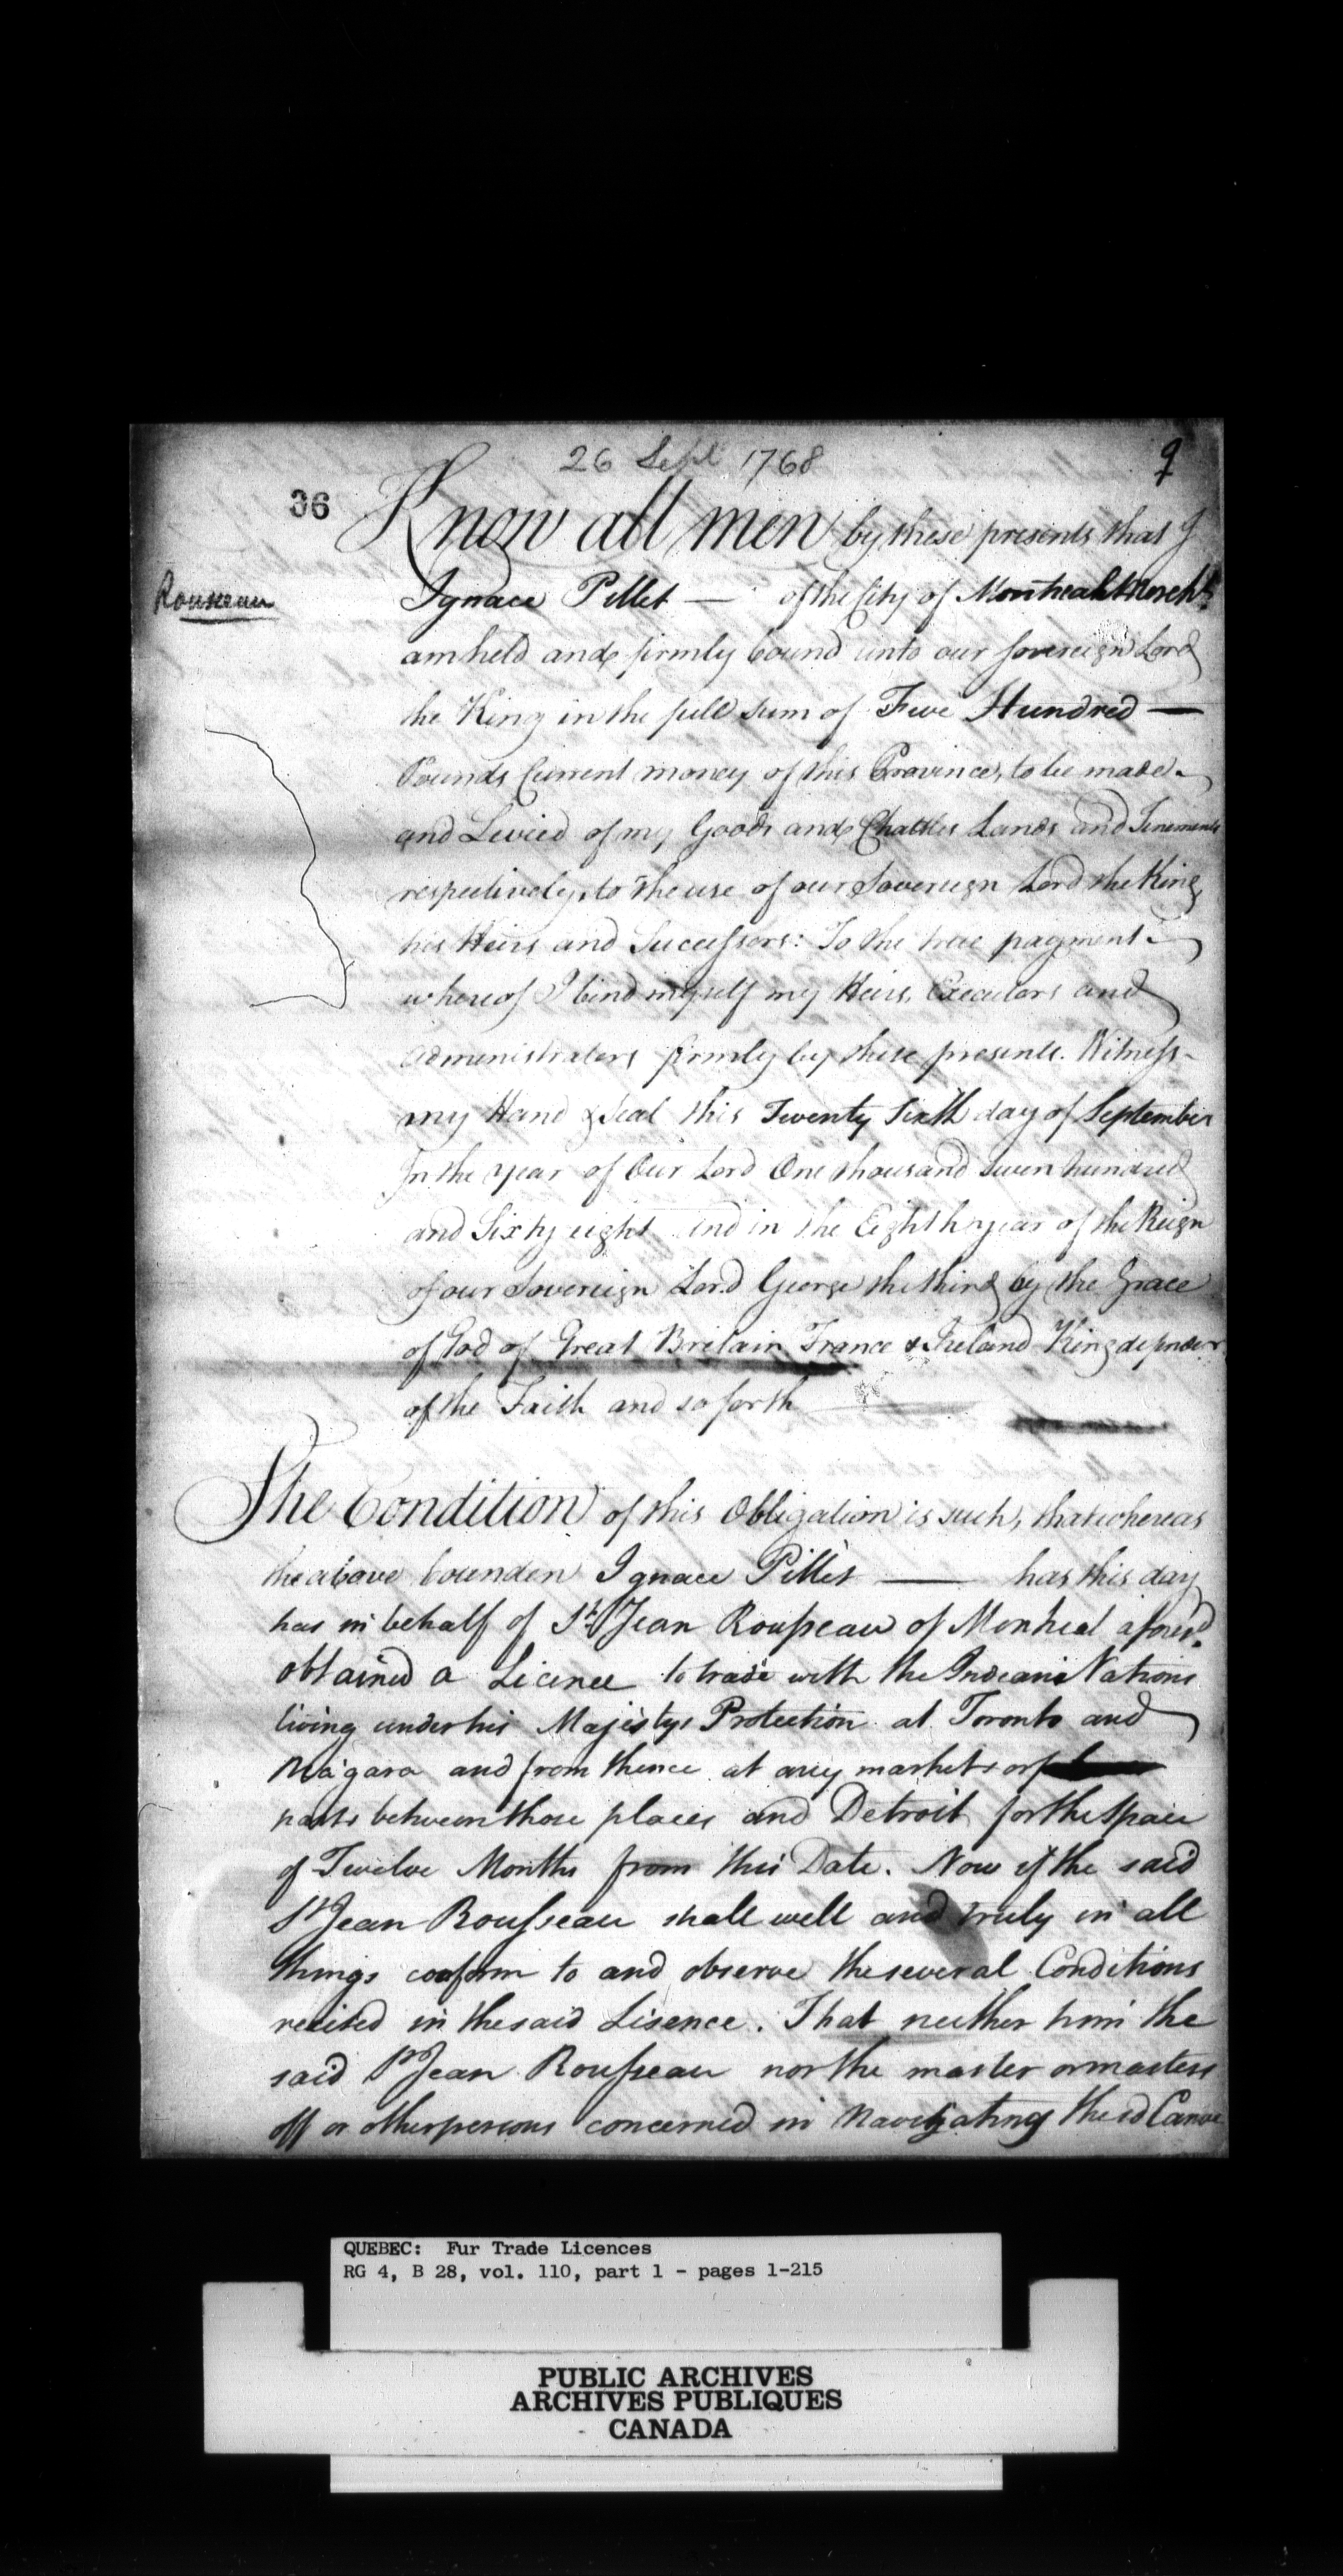 26 Sept 1768
9
36
Know all men by these presents that I
Rousseau
Ignace Pillet — of the City of Montreal Mercht
am held and firmly bound unto our sovereign Lord
the King in the full sum of Five Hundred —
Pounds Current money of this Province, to be made
and Levied of my Goods and Chattles Lands and Tenements
respectively, to the use of our Sovereign Lord the King
his Heirs and Successors: To the true payment
whereof I bind myself my Heirs, Executors and
administrators firmly by these presents. Witness
my Hand & Seal this Twenty Sixth day of September
In the year of Our Lord One thousand Seven hundred
and Sixty eight and in the Eighth year of the Reign
of our Sovereign Lord George the third by the Grace
of God of Great Britain France & Ireland King defender
of the Faith and so forth
The Condition of this Obligation is such, that whereas
the above bounden Ignace Pillet — has this day
has in behalf of St. Jean Rousseau of Montreal aforesd.
obtained a Licence to trade with the Indians Nations
living under his Majestys Protection at Toronto and
Niagara and from thence at any markets or
parts between those places and Detroit for the Space
of Twelve Months from this Date. Now if the said
St Jean Rousseau shall well and truly in all
things conform to and observe the several Conditions
recited in the said Lisence. That neither him the
said St Jean Rousseau nor the master or masters
off or other persons concerned in Navigating the sd Canoe
QUEBEC: Fur Trade Licences
RG 4, B 28, vol. 110, part 1 - pages 1-215
PUBLIC ARCHIVES
ARCHIVES PUBLIQUES
CANADA